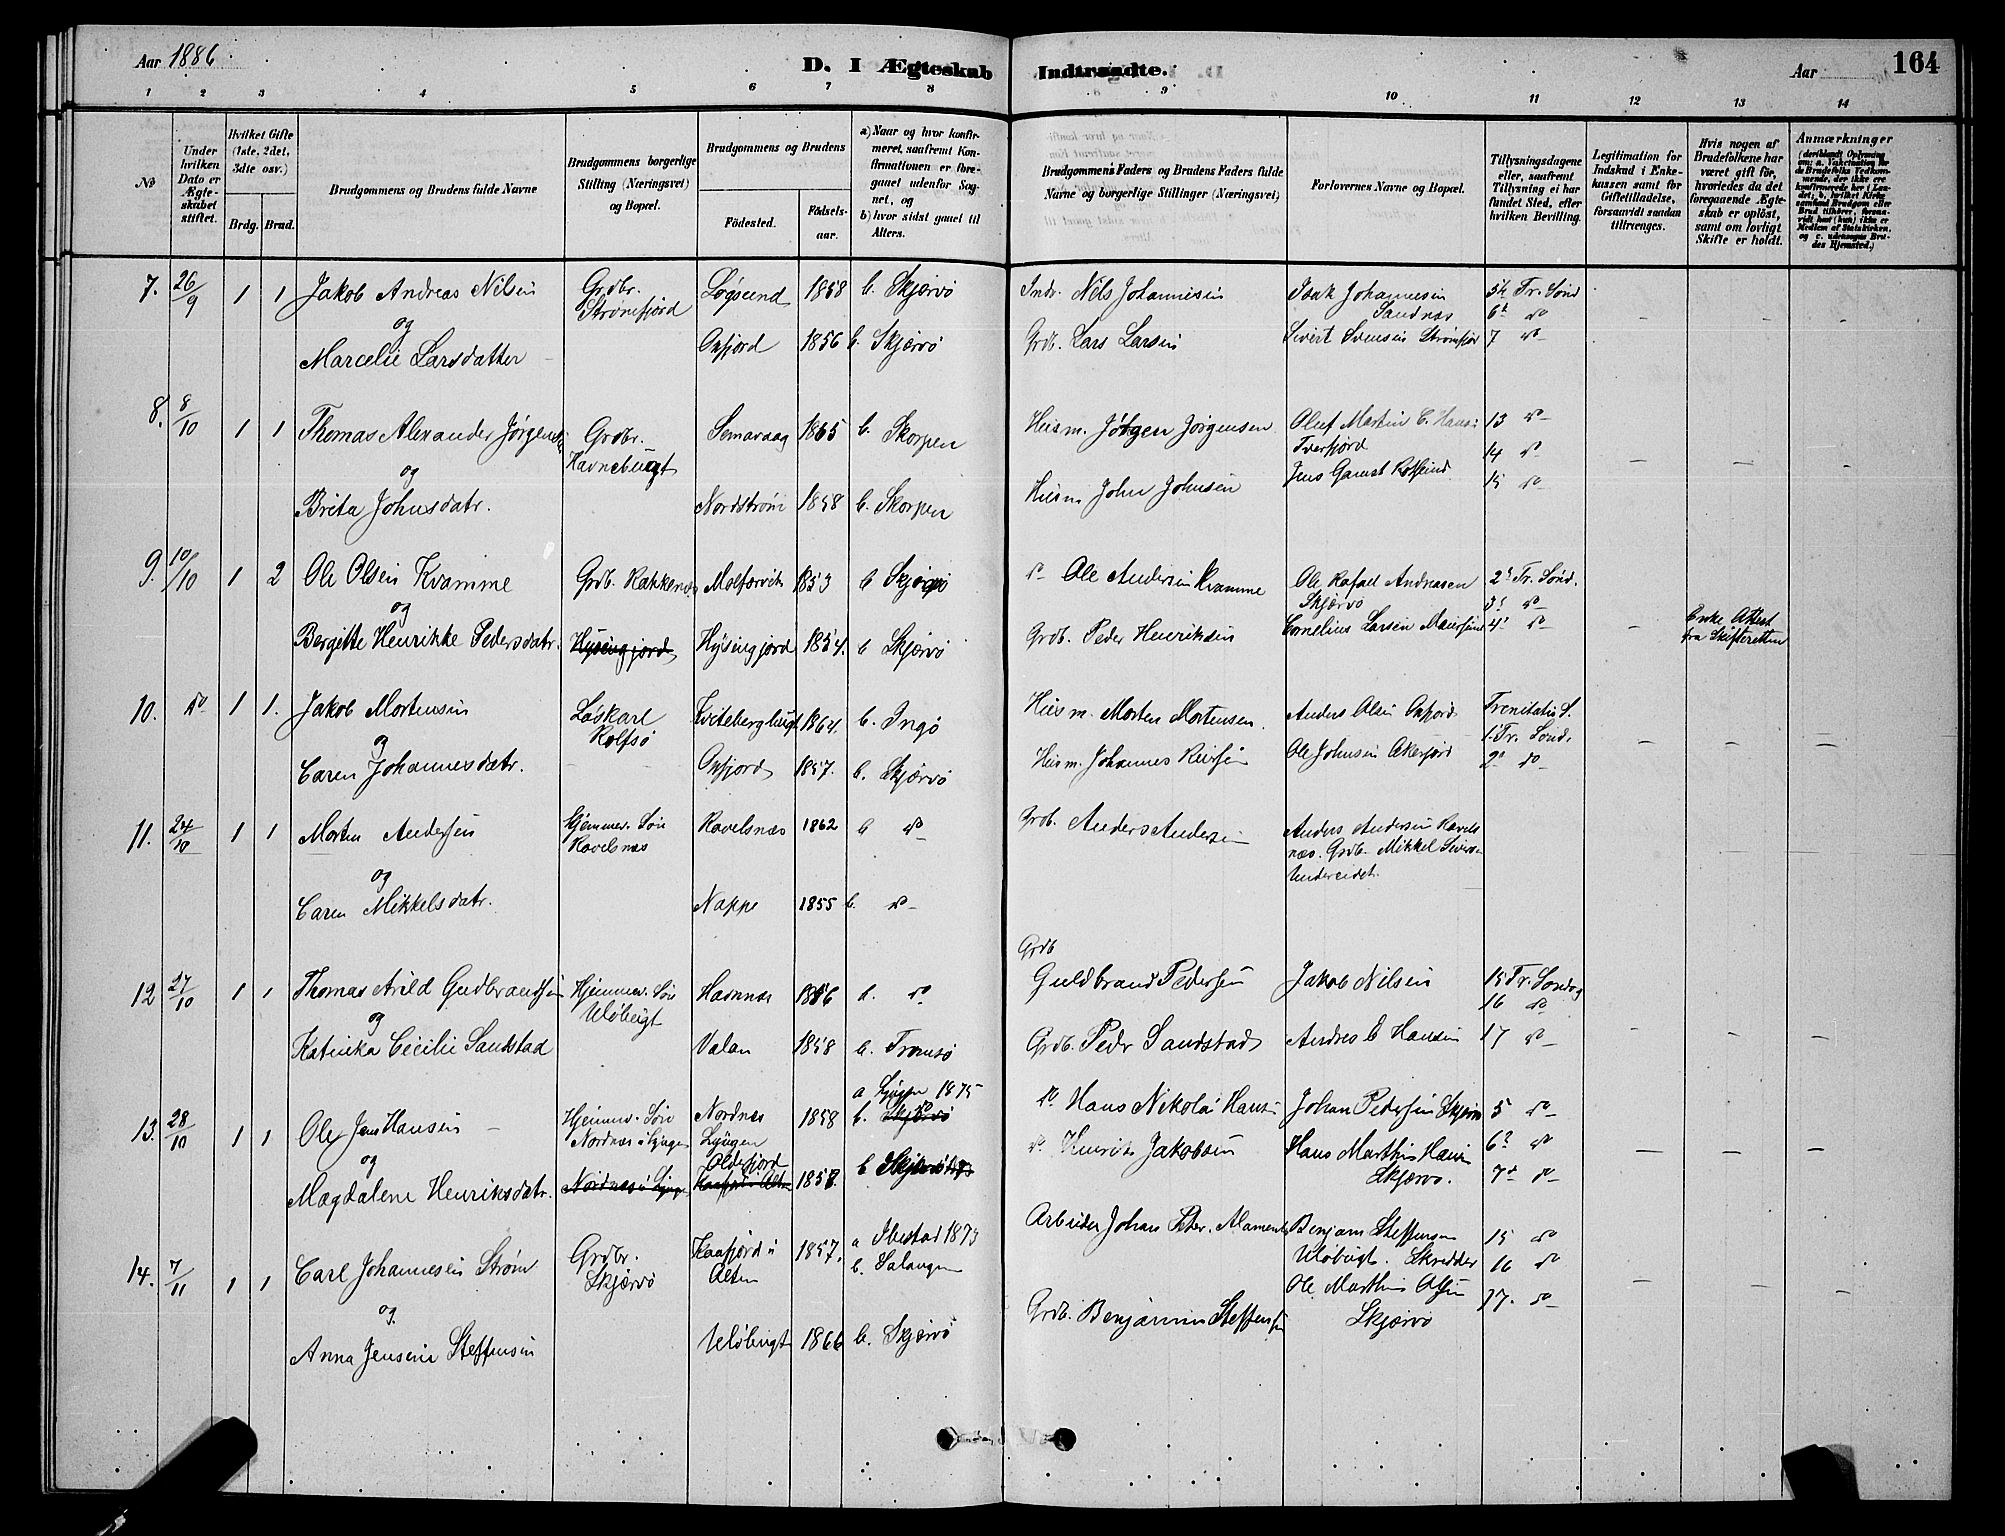 Aar 1886
D. I Ægteskab Indtraadte.
Aar
164
1 2 3 4 5 6 7 8 9 10 11 12 13 14
No
Under hvilken Dato er Ægteskabet stiftet.
Hvilket Gifte (1ste, 2det, 3dte osv.)
Brdg. Brud.
Brudgommens og Brudens fulde Navne
Brudgommens borgerlige Stilling (Næringsvei) og Bopæl.
Brudgommens og Brudens
Födested.
Födselsaar.
a) Naar og hvor konfirmeret, saafremt Konfirmationen er foregaaet udenfor Sognet, og
b) hvor sidst gaaet til Alters.
Brudgommens Faders og Brudens Faders fulde Navne og borgerlige Stillinger (Næringsvei)
Forlovernes Navne og Bopæl.
Tillysningsdagene eller, saafremt Tillysning ei har fundet Sted, efter hvilken Bevilling.
Legitimation for Indskud i Enkekassen samt for Giftetilladelse, forsaavidt saadan tiltrænges.
Hvis nogen af Brudefolkene har været gift för, hvorledes da det foregaaende Ægteskab er oplöst, samt om lovligt Skifte er holdt.
Anmærkninger
7. 26/9 1 1 Jakob Andreas Nilsen Grdbr. Løgsund 1858 b. Skjærvö Indr. Nils Johannesen Isak Johannesen 5te Tr. Sönd
Strömfjord Sandnæs 6te do
og
Marcelie Larsdatter Oxfjord 1856 b. Skjærvö Grdb. Lars Larsen Sivert Svensen Strömfjor 7 do
8. 8/10 1 1 Thomas Alexander Jörgensen Grdbr. 1865 b. Skorpen Husm. Jörgen Jörgensen Oluf Martin C. Hansen 13 do
Havnebugt Tverfjord 14 do
og
Brita Johnsdatr. Nordström 1858 b. Skorpen Husm John Johnsen Jens Gamst 15 do
9. 10/10 1 2 Ole Olsen Kvamme Grdb. Rakkenæs 1853 b Skjærvö do Ole Andersen Kvamme Ole Rafael Andreasen 2d Tr. Sönd.
Skjærvö 3d do
og
Bergitte Henrikke Pedersdatr. Hysingjord Hysingjord 1854. b Skjærvö Grdb. Peder Henriksen Cornelius Larsen 4d do Enke Attest
fra Skifteretten
10. do 1 1. Jakob Mortensen Löskarl Kviteberg 1864. b. Ingö Husm. Morten Mortensen Anders Olsen Oxfjord Trenitatis S.
Rolfsö 1. Tr. Sönd.
og
Caren Johannesdatr. Oxfjord 1857. b. Skjærvö Husm. Johannes Ole Johnsen Akerfjord 2d do
11. 24/10 1 1 Morten Andersen Hjemmev. Sön Ravelsnæs 1862 b do Grdb. Anders Andersen Anders Andersen Ravels
Ravelsnæs næs. Grdb. Mikkel Sivers
Undereidet.
og
Caren Mikkelsdatr. Nappe 1855 b. do
Grdb
12 27/10 1 1 Thomas Arild Gudbrandsen Hjemmev. Sön Havnnæs 1856 b. do Guldbrand Pedersen Jakob Nilsen 15 Tr. Söndag
Ulöbugt 16 do
og
Katinka Cecilie Sandstad Valan 1858 b. Tromsö Grdb. Peder Sandstad Andreas C Hansen 17 do
a Lyngen 1875
13. 28/10 1 1 Ole Jens Hansen Hjemmev. Sön Nordnæs 1858 b. do Skjærvö do Hans Nikolai Hansen Johan Pedersen Skjærvö 5 do
Nordnæs i Lyngen Lyngen
og
Magdalene Henriksdatr. Nordnæs i Lyngen Oldefjord Kaafjord i Alten 1858. b Skjærvö do Henrik Jakobsen Hans Marthin Hansen 6d do
Skjærvö. 7d do
14. 7/11 1 1 Carl Johannesen Ström Grdbr. Kaafjord i 1857. a Ibestad 1873 Arbeider Johan Peter Benjam Steffensen 15 do
Skjærvö Alten b. Salangen Ulöbugt. Skrædder 16 do
og
Anna Jensine Steffensen Ulöbugt 1866 b. Skjærvö Grdb. Benjamin Steffensen Ole Marthin Olsen 17. do
Skjærvö